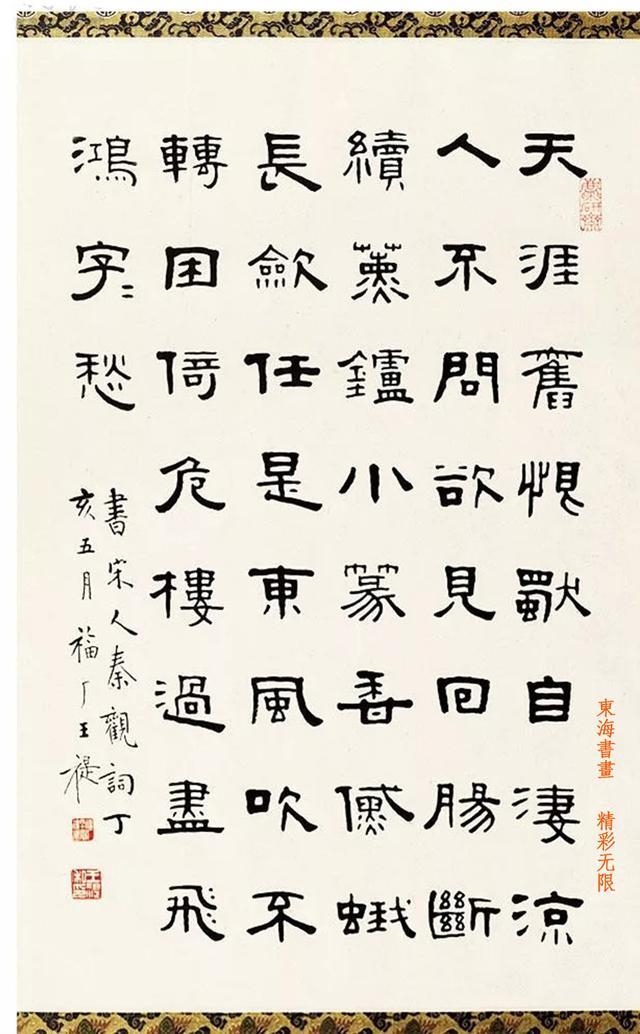 天涯舊恨獨自淒涼
人不問欲見回腸斷
續薰鑪小篆香黛蛾
長歛任是東風吹不
轉困倚危樓過盡飛
鴻字〻愁
書宋人秦觀詞丁
亥五月福厂王禔
東海書畫 精彩无限